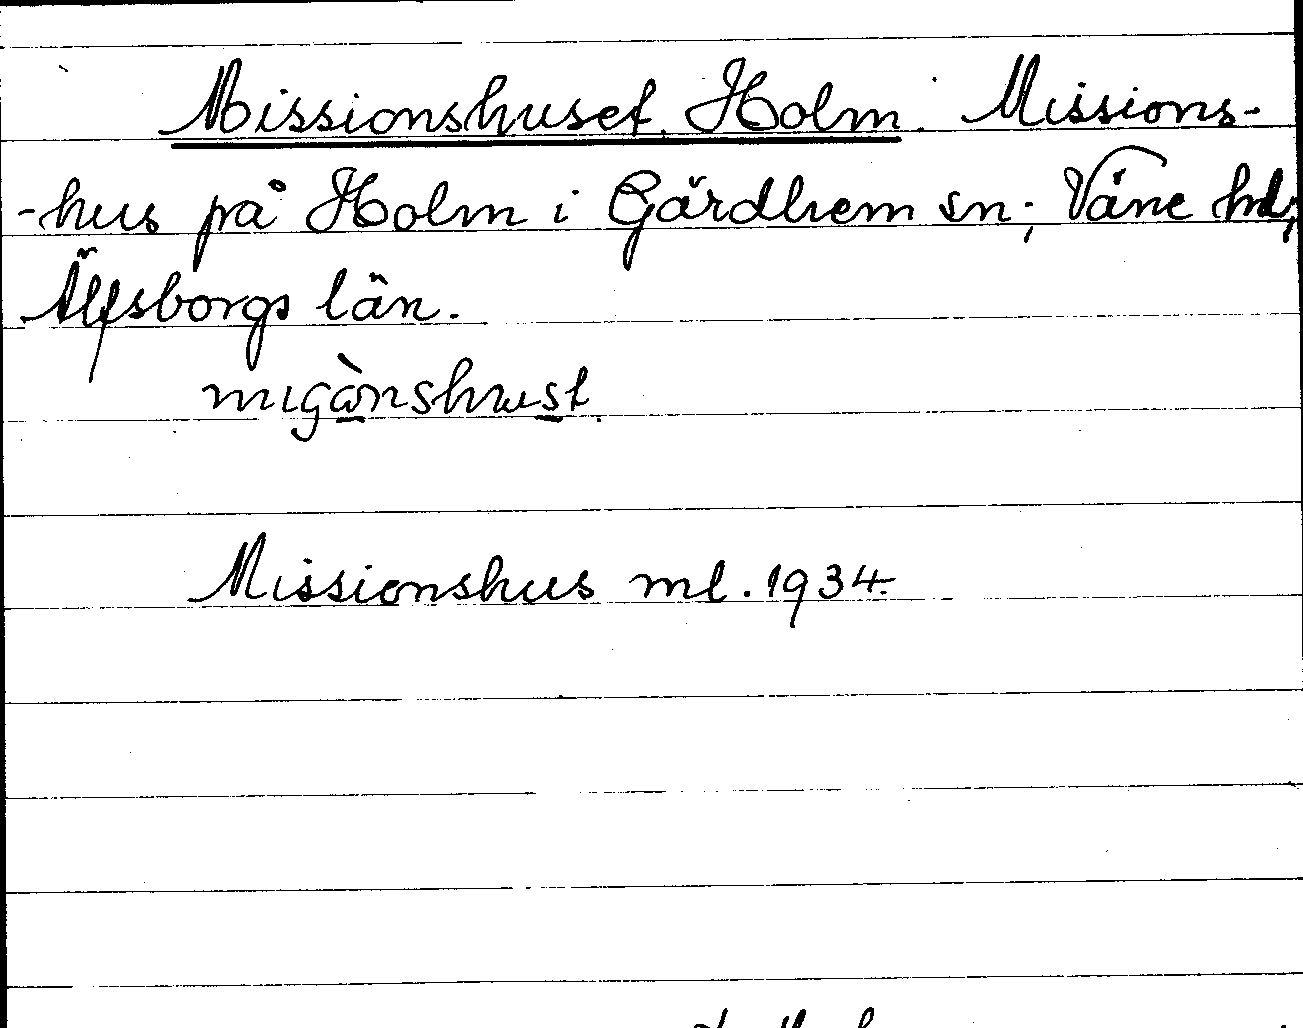 Missionshuset Holm. Missions-
-hus på Holm i Gärdhem sn; Väne hd;
Älfsborgs län.
migànshust.
Missionshus ml. 1934.